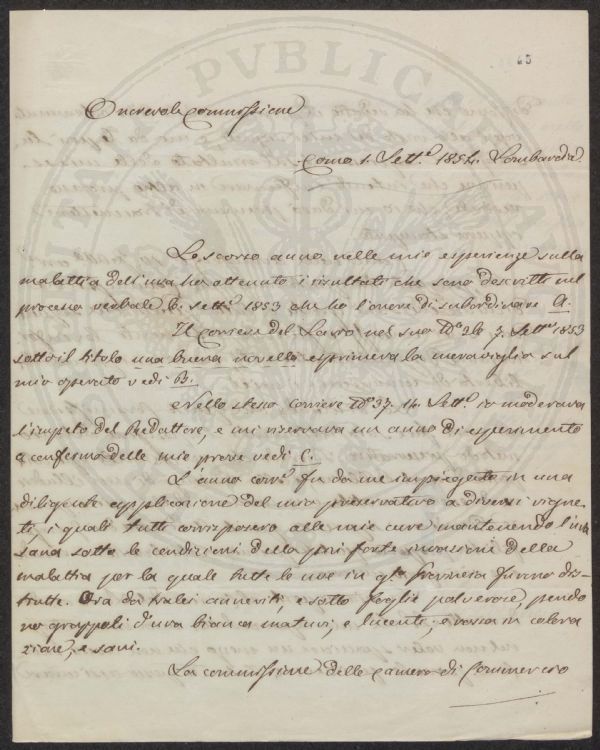 65
Onorevole Commissione
Como 1. Sett.e 1854. Lombardia.
Lo scorso anno, nelle mie esperienze sulla
malattia dell'uva ho ottenuto i risultati che sono descritti nel
processo verbale 6. Sett.e 1853 che ho l'onore di subordinare A.
Il Corriere del Lario nel suo N.o 36 7. Sett.e 1853
sotto il titolo una buona novella esprimeva la meraviglia sul
mio operato vedi B.
Nello stesso corriere N.o 37. 14. Sett.e io moderava
l'impeto del Redattore, e mi riservava un anno di esperimento
a conferma delle mie prove vedi C.
L'anno corr.e fu da me impiegato in una
diligente applicazione del mio preservativo a diversi vigne-
ti, i quali tutti corrisposero alle mie cure mantenendo l'uva
sana sotto le condizioni della più forte invasione della
malattia per la quale tutte le uve in q.ta Provincia furono dis-
trutte. Ora da tralci anneriti, e sotto foglie polverose, pendo
no grappoli d'uva bianca maturi, e lucenti; e rossa in colora
zione, e sani.
La commissione della camera di Commercio
PVBLICA